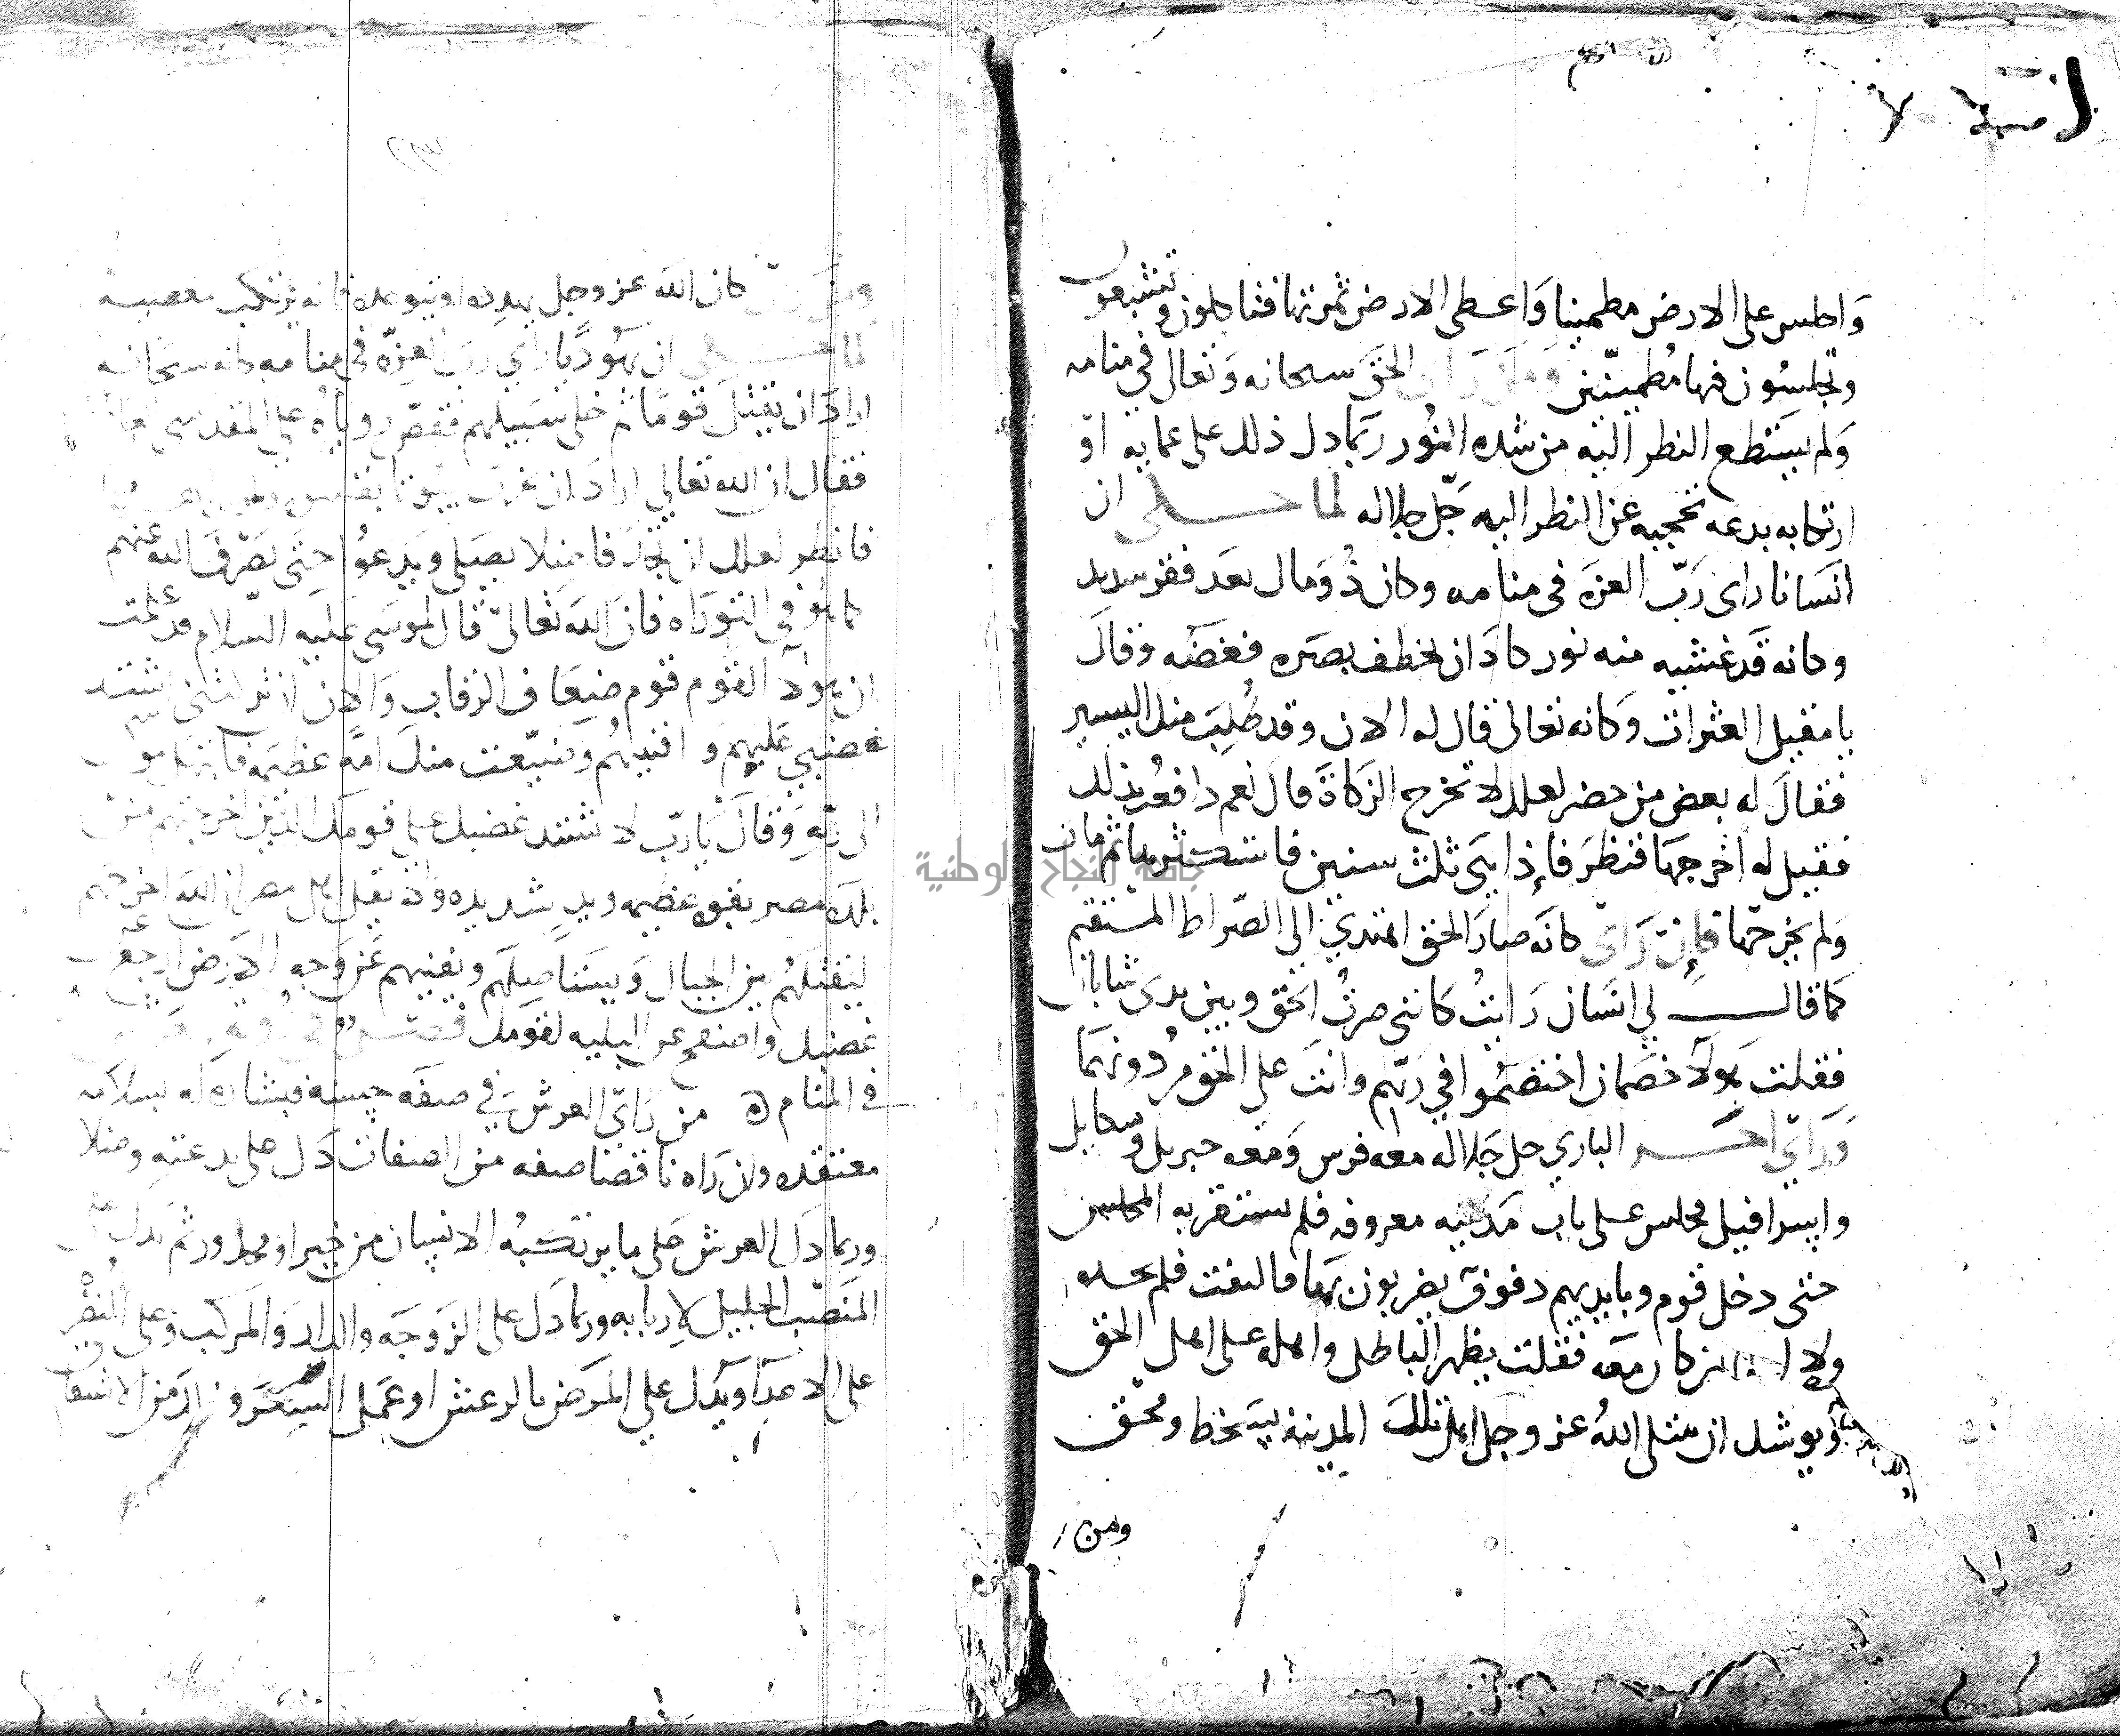 واجلس على الارض مطمينا واعطى الارض ثمرتها فتاكلون وتشبعون
وتجلسون فيها مطمينين ومن راى الحق سبحانه وتعالى في منامه
ولم يستطع النظر اليه من شده النور ربما دل ذلك على عمايه او
ارتكابه بدعه تحجبه عن النظر اليه جل جلاله لما حكى ان
انسانا راى رب العزه في منامه وكان ذو مال بعد فقر شديد
وكانه قد غشيه منه نور كاد ان يخطف بصره فغضه وقال
يا مقيل العثرات وكانه تعالى قال له الان وقد طلبت منك اليسير
فقال له بعض من حضر لعلك لا تخرج الزكاة قال نعم
فقيل له اخرجها فنظر فاذا هى ثلث سنين فاستكثرها ثم مات
ولم يخرجها فان راى كانه صار الحق اهتدي الى الصراط المستقيم
كما قال لي انسان رايت كانني صرت الحق وبين يدي شابان
فقلت هولا خصمان اختصموا في ربهم وانت على الحق دونهما
وراي اخر الباري جل جلاله معه فرس ومعه جبريل وميكايل
واسرافيل فجلس على باب مدينه معروفه فلم يستقر به المجلس
حتى دخل قوم وبايديهم دفوف يضربون بها فالتفت فلم يجده
ولا من كان معه فقلت يظهر الباطل واهله على اهل الحق
ويوشك ان يبتلى الله عز وجل اهل تلك المدينة بسخط ومحق
ومن
كان الله عز وجل يهدده او يتوعده فانه يرتكب معصيه
لما حكى ان يهوديا راي رب العزه في منامه كانه سبحانه
اراد ان يقتل قوما ثم خلى سبيلهم فقص روياه على المقدسي
فقال ان الله تعالي اراد ان
فانظر لعلك ان تجد فاضلا يصلي ويدعوا حتى يصرف الله عنهم
كما هو في التوراه فان الله تعالى قال لموسى عليه السلام قد علمت
ان هولا القوم قوم الرقاب والان اشتد
غضبي عليهم و افنيهم امه عظيمه فابتهل موسى
الى ربه وقال يا رب لا تشتد غضبك على قومك الذين اخرجتهم من
بلد مصر بقوه عظيمه ويد شديده اهل مصر ان الله اخرجهم
ليقتلهم بين الجبال ويستاصلهم ويفنيهم عن وجه الارض ارجع عن
غضبك واصفح عن البليه لقومك فصل في
في المنام من راى العرش في صفه حسنة فبشاره له بسلامه
معتقده وان راه ناقصا صفه من الصفات دل على بدعته وضلا
وربما دل العرش على ما يرتكبه الانسان من خير او محذور ثم يدل على
المنصب الجليل لاربابه وربما دل على الزوجه والدار والمركب وعلى النصر
على الاعدا ويدل على المرض بالرعش او عمل السحر